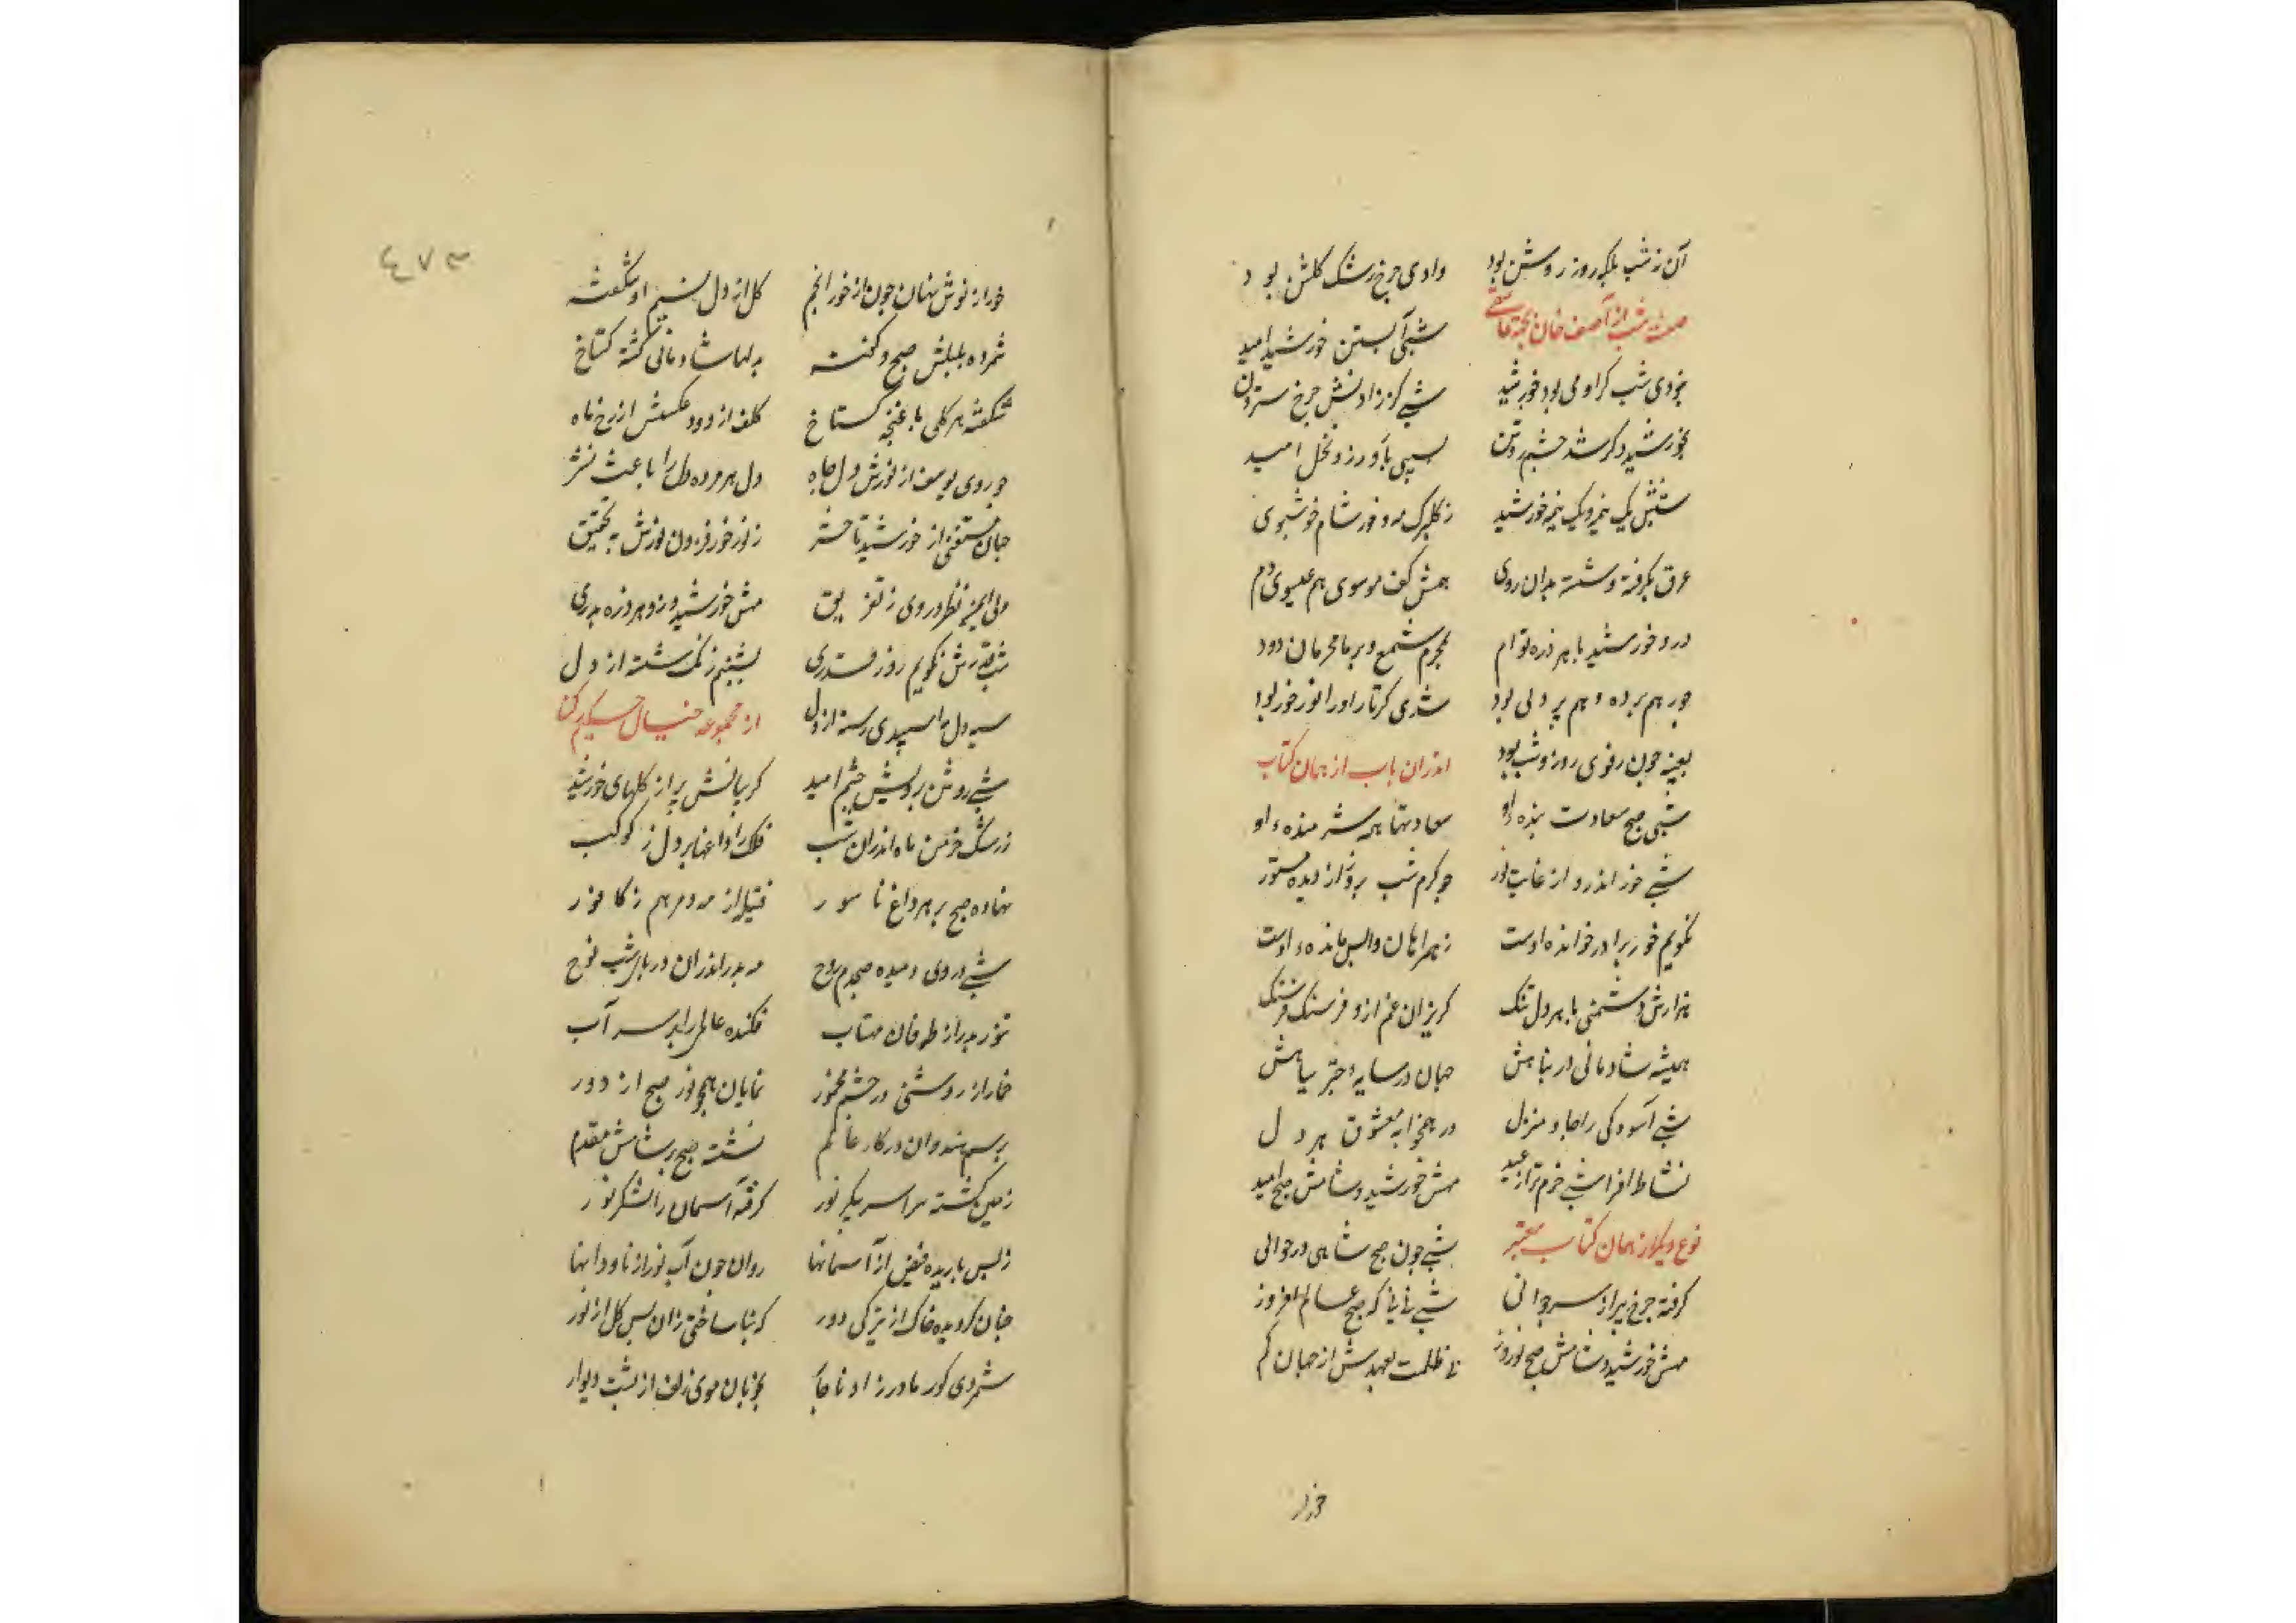 آن نه شب بلکه روز روشن بود وادی چرخ رشک گلشن بود
صفت شب از آصف خان شبی آبستن خورشید امید
بزودی شب کزاو می بود خورشید شبی کز زادنش چرخ سترون
بخورشید دگر شد چشم روشن سپی باورز و نخل امید
خورشید زگلبرگ مه و خور شام خوشبوی
عرق بگرفته و شسته بدان روی همش کف موسوی هم عیسوی دم
درو خورشید با هر ذره توام شمع و بر ما محرمان دود
بود خور بود
بعینه چون روز و شب بود اندران باب از همان کتاب
شبی صبح سعادت بنده او سعادتها همه شرمنده او
شبی خور اندرو از غایت نور چو کرم شب بروز از دیده مستور
نکویم خور برادر خوانده اوست زهمراهان واپس مانده اوست
هزارش دشمنی با هر دل تنگ گریزان غم ازو فرسنگ فرسنگ
همیشه شادمانی در پناهش جهان در سایه چتر سیاهش
شبی آسودگی را جا و منزل در همخوابه معشوق هر دل
نشاط افزا شبی خرم تر از عید مهش خورشید و شامش صبح امید
نوع دیگر از همان کتاب معتبر شبی چون صبح شاهی در جوانی
گرفته چرخ پیر از سر جوانی شبی نی نی که صبح عالم افروز
مهش خورشید و شامش صبح نوروز ظلمت بعهدش از جهان گم
خور از
٤٧٣
خور از نورش نهان چون از خور انجم گل از دل نسیم او شگفته
بلبلش صبح و بدلها شادمانی گشته گستاخ
شگفته هر گلی با غنچه گستاخ کلف از دود عکسش از رخ ماه
چو روی یوسف از نورش دل چاه دل هر مرده دل را باعث نشر
جهان مستغنی از خورشید تا حشر ز نور خور فزون نورش به تحقیق
نظر در وی ز تفریق مهش خورشید و زو هر ذره بدری
شب قدرش نکویم روز قدری بشبنم زنگ شسته از دل
سیه دل سپیدی رسته از دل از مجموعه خیال حکیم رکنا
شبی روشن برویش چشم امید گریبانش پر از گلهای خورشید
ز رشک خرمن ماه اندران شب فلک را داغها بر دل ز کوکب
نهاده صبح بر هر داغ ناسور فتیله از مه و مرهم ز کافور
شبی در وی دمیده صبحدم روح مه بدر اندران دریای شب نوح
تنور بدر از طوفان مهتاب فکنده عالمی را بر سر آب
خمار از روشنی در چشم مخمور نمایان همچو نور صبح از دور
برسم هندوان در کار عالم نشسته صبح بر شامش مقدم
زمین گشته سراسر پیکر نور گرفته آسمان را لشکر نور
ز بس باریده فیض از آسمانها روان چون آب نور از ناودانها
چنان گردیده خاک از تیرگی دور که بنا ساختی زان پس گل از نور
شمردی کور مادرزاد ناچار موی زلف از پشت دیوار